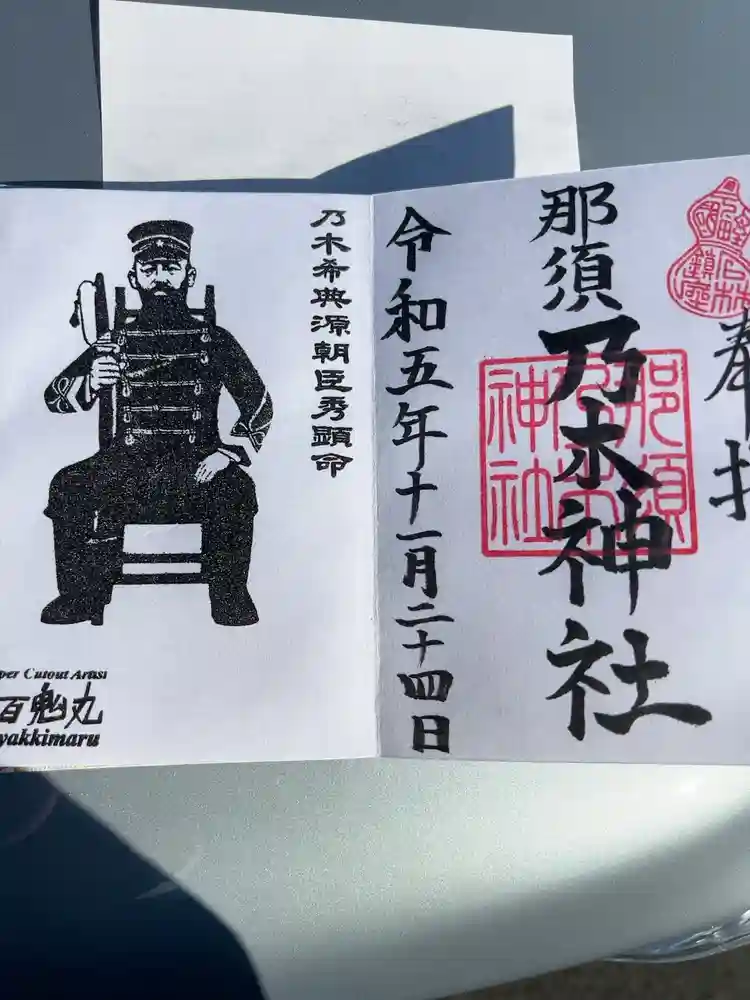 奉拝
那須乃木神社
那須
乃木
神社
令和五年十一月二十四日
乃木希典源朝臣秀顕命
per Cutout Artist
百鬼丸
yakkimaru